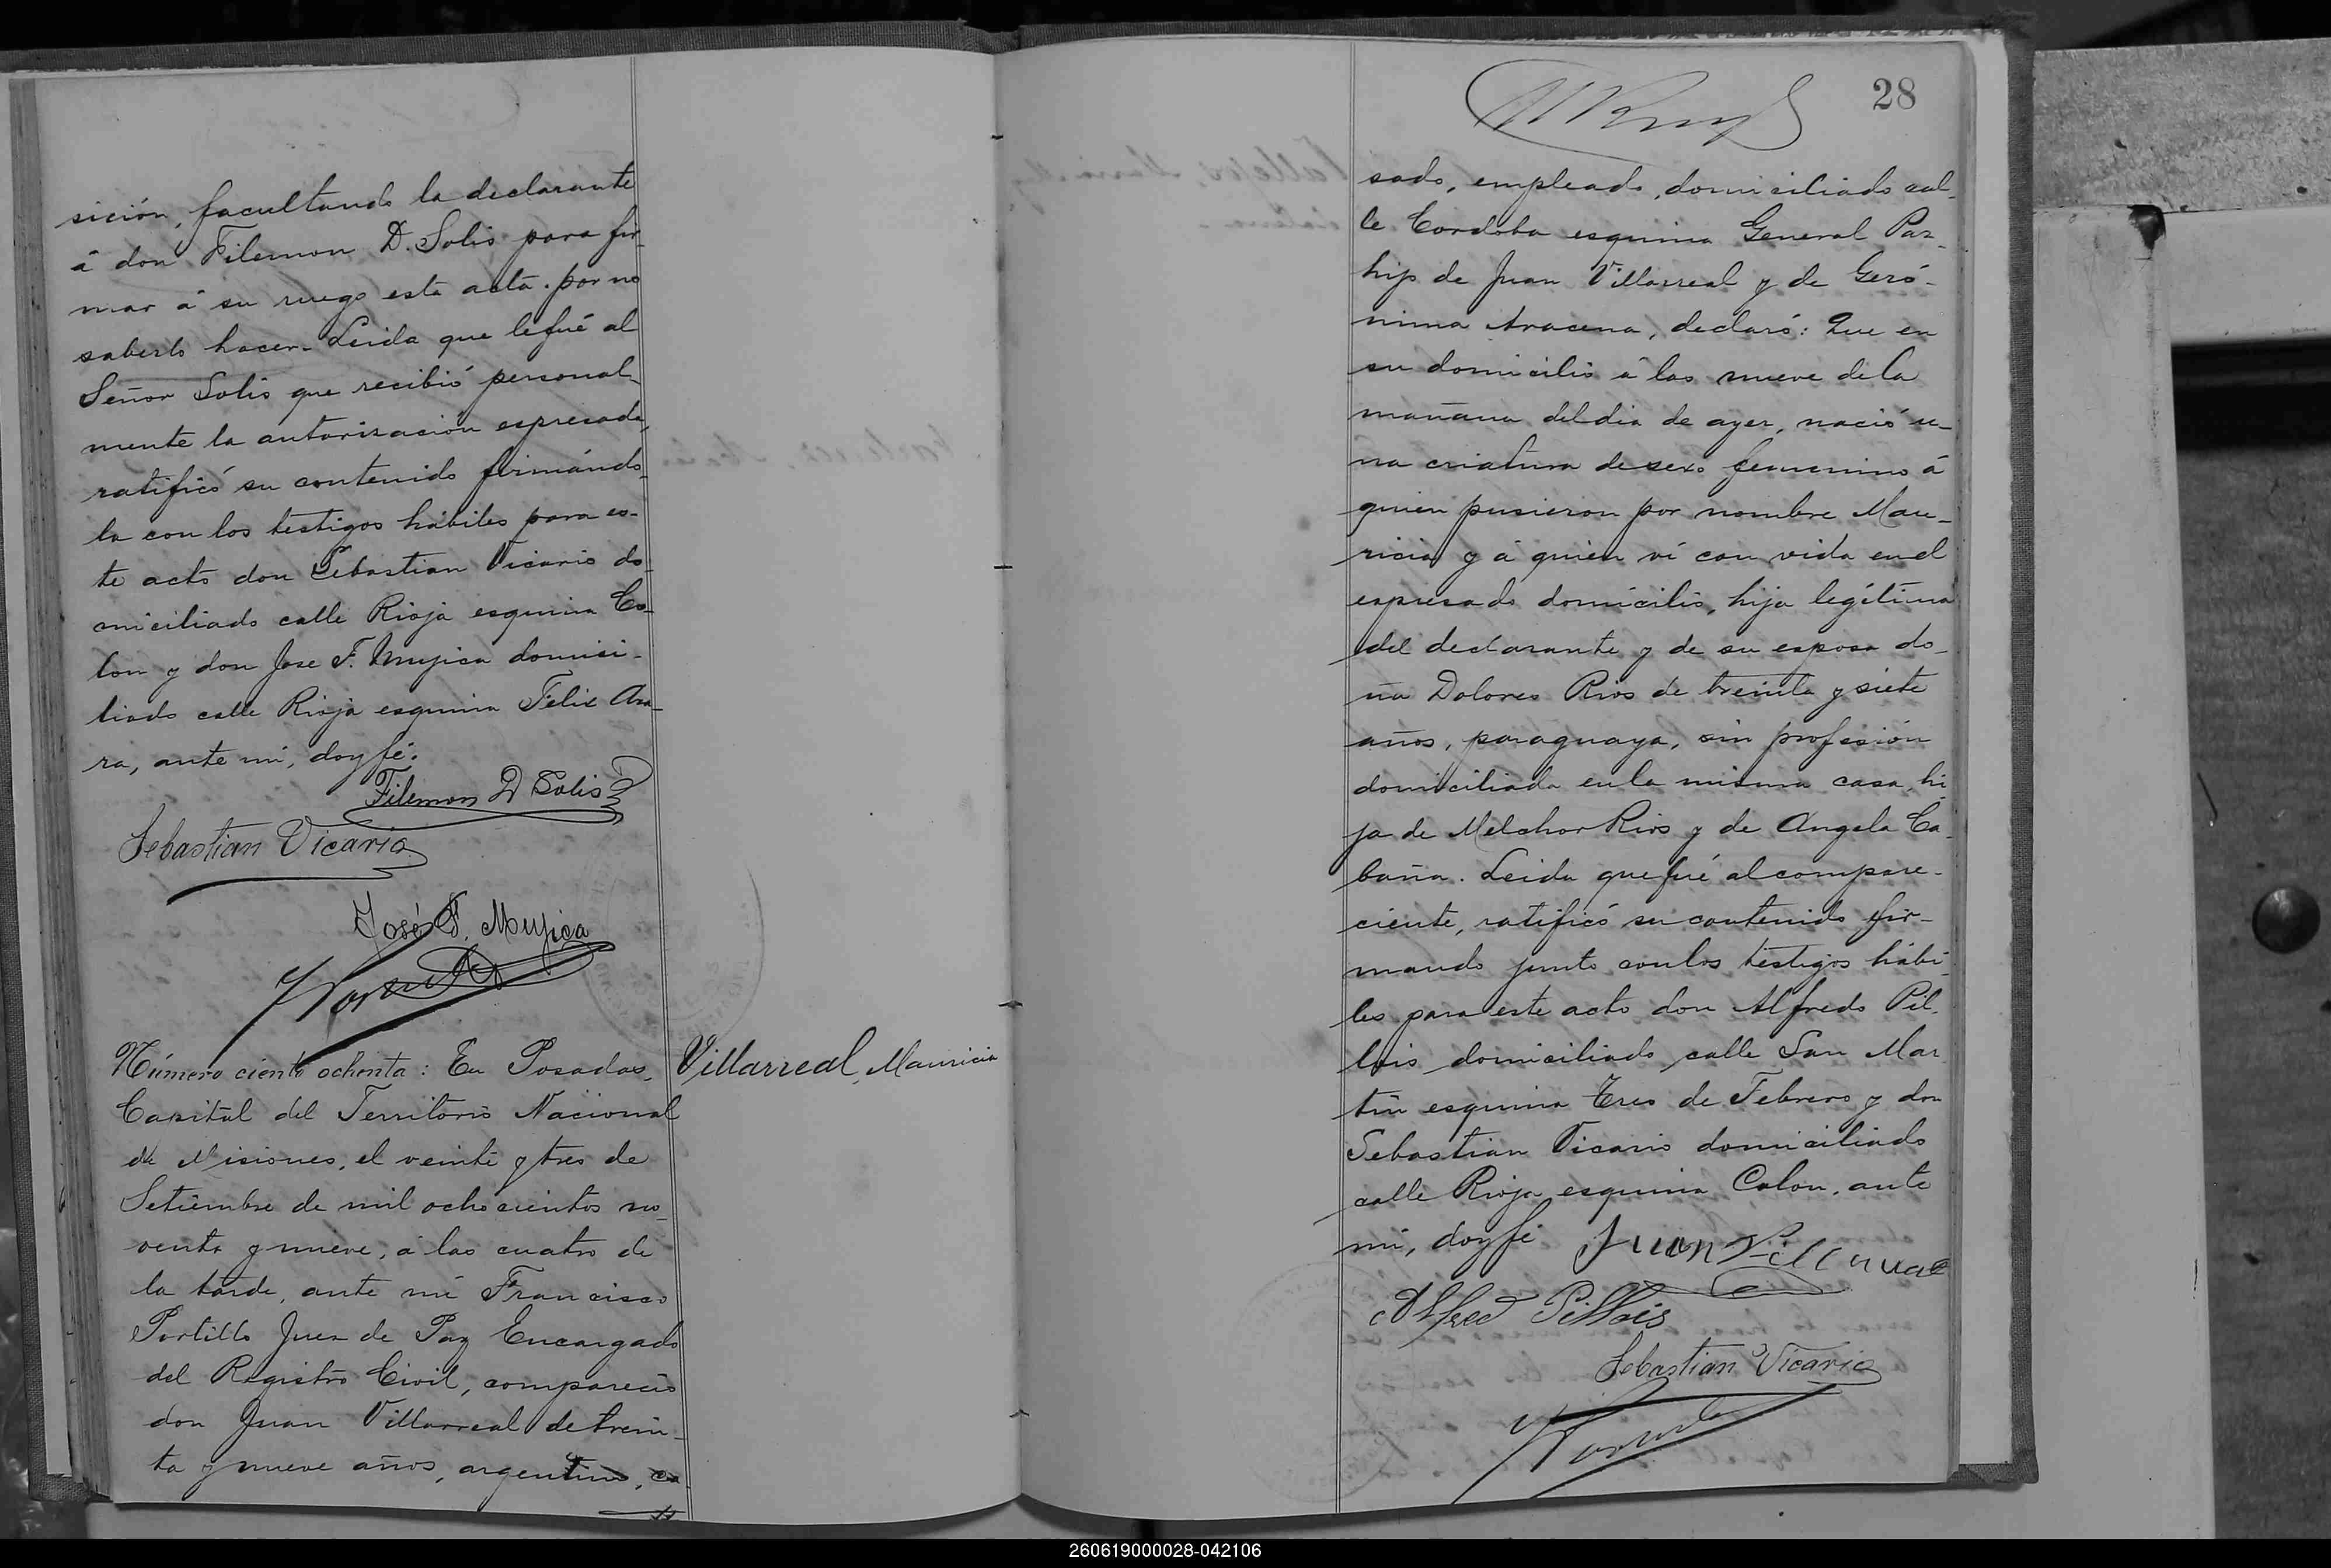 sición, facultando la declarante
á don Filemon D. Solis para fir-
mar á su ruego esta acta por no
saberlo hacer. Leida que le fué al
Señor Solis que recibió personal-
mente la autorisación espresada,
ratificó su contenido firmándo-
la con los testigos hábiles para es-
te acto don Sebastian Vicario do-
miciliado calle Rioja esquina Co-
lon y don Jose F. Mujica domici-
liado calle Rioja esquina Felix Aza-
ra, ante mi, doy fé.
Filemon D Solis
Sebastian Vicario
José F. Mujica
Número ciento ochenta: En Posadas,
Capital del Territorio Nacional
de Misiones, el veinte y tres de
Setiembre de mil ochocientos no-
venta y nueve, á las cuatro de
la tarde, ante mi Francisco
Portillo Juez de Paz Encargado
del Registro Civil, compareció
don Juan Villarreal de trein-
ta y nueve años, argentino, ca-
Villarreal, Mauricia
28
sado, empleado, domiciliado cal-
le Cordoba esquina General Paz
hijo de Juan Villarreal y de Geró-
nima Aracena, declaró: Que en
su domicilio á las nueve de la
mañana del dia de ayer, nació u-
na criatura de sexo femenino á
quien pusieron por nombre Mau-
ricia y á quien ví con vida en el
espresado domicilio, hija legítima
del declarante y de su esposa do-
ña Dolores Rios de treinta y siete
años, paraguaya, sin profesión
domiciliada en la misma casa, hi-
ja de Melchor Rios y de Angela Ca-
baña. Leida que fué al compare-
ciente, ratificó su contenido fir-
mando junto con los testigos hábi-
les para este acto don Alfredo Pil-
lois domiciliado calle San Mar-
tin esquina Tres de Febrero y don
Sebastian Vicario domiciliado
calle Rioja esquina Colon, ante
mi, doy fé Juan Villarreal
Alfred Pillois
Sebastian Vicario
260619000028-042106